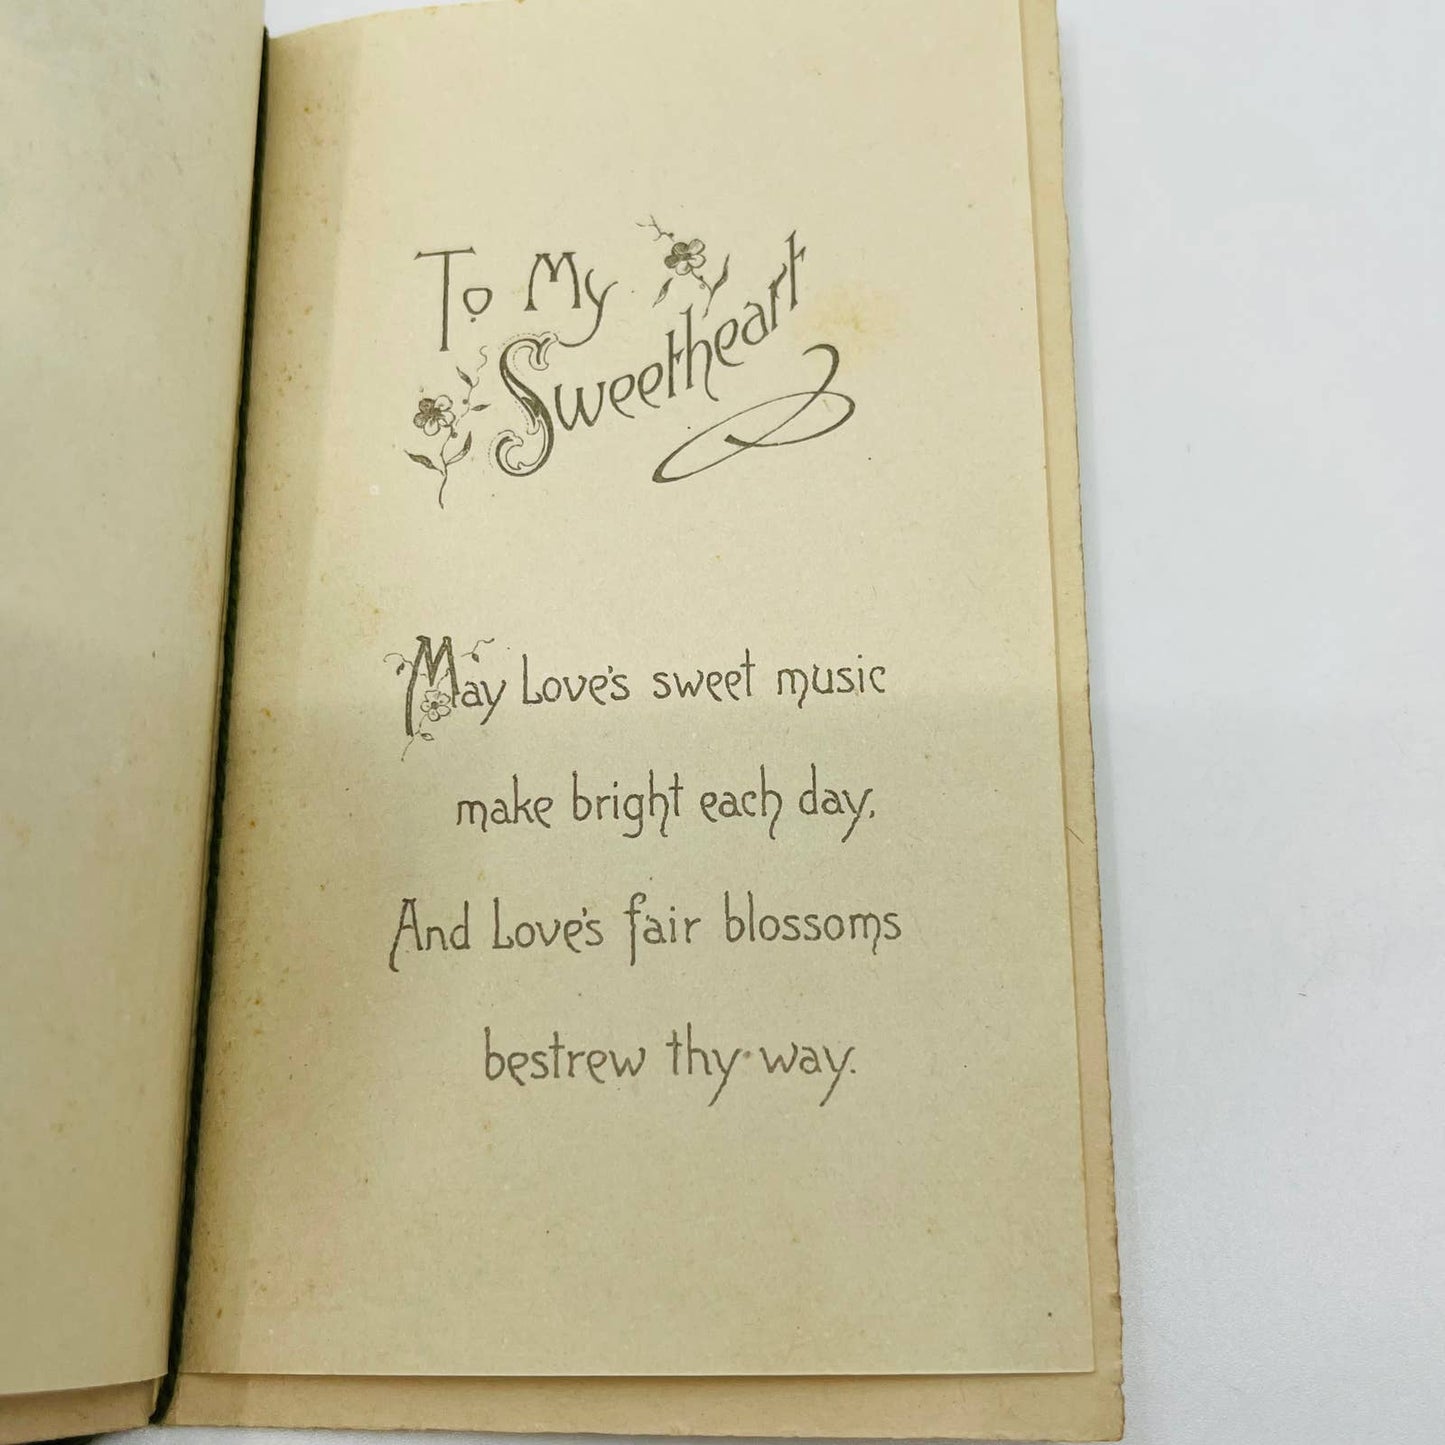 To My
Sweetheart
May Love's sweet music
make bright each day,
And Love's fair blossoms
bestrew thy way.